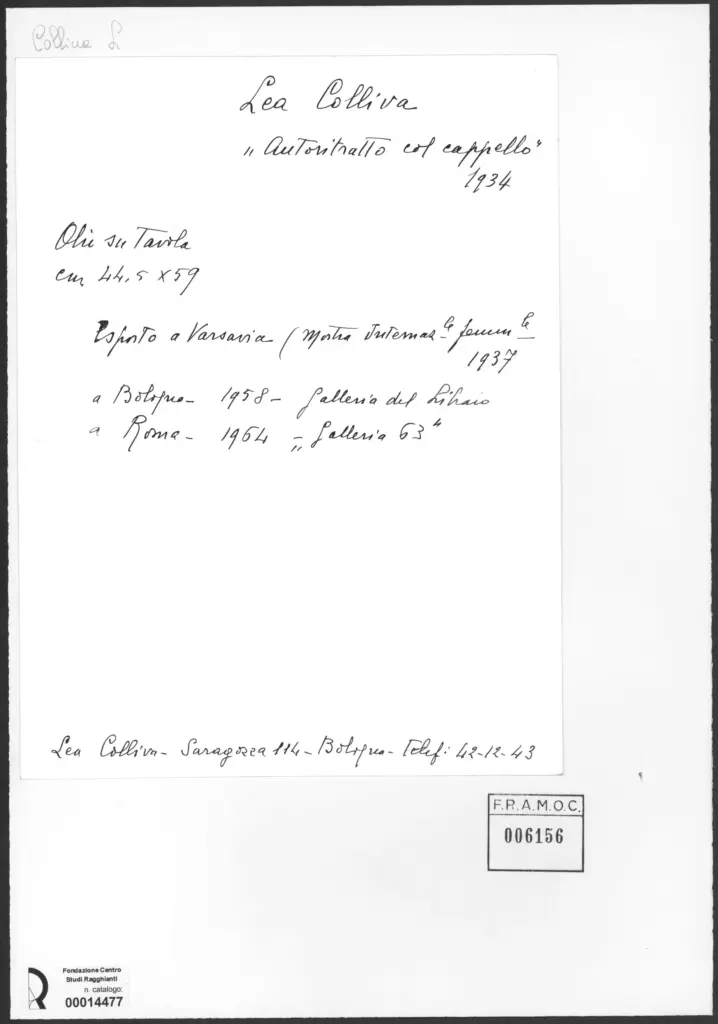 Colliva L
Lea Colliva
„Autoritratto col cappello"
1934
Olii su Tavola
cm 44,5 x 59
Esposto a Varsavia (Mostra Internaz le femm le
1937
a Bologna - 1958 - Galleria del Libraio
a Roma - 1964 - „Galleria 63"
Lea Colliva - Saragozza 114 - Bologna - Telef: 42-12-43
F.R.A.M.O.C.
006156
Fondazione Centro
Studi Ragghianti
n. catalogo:
00014477